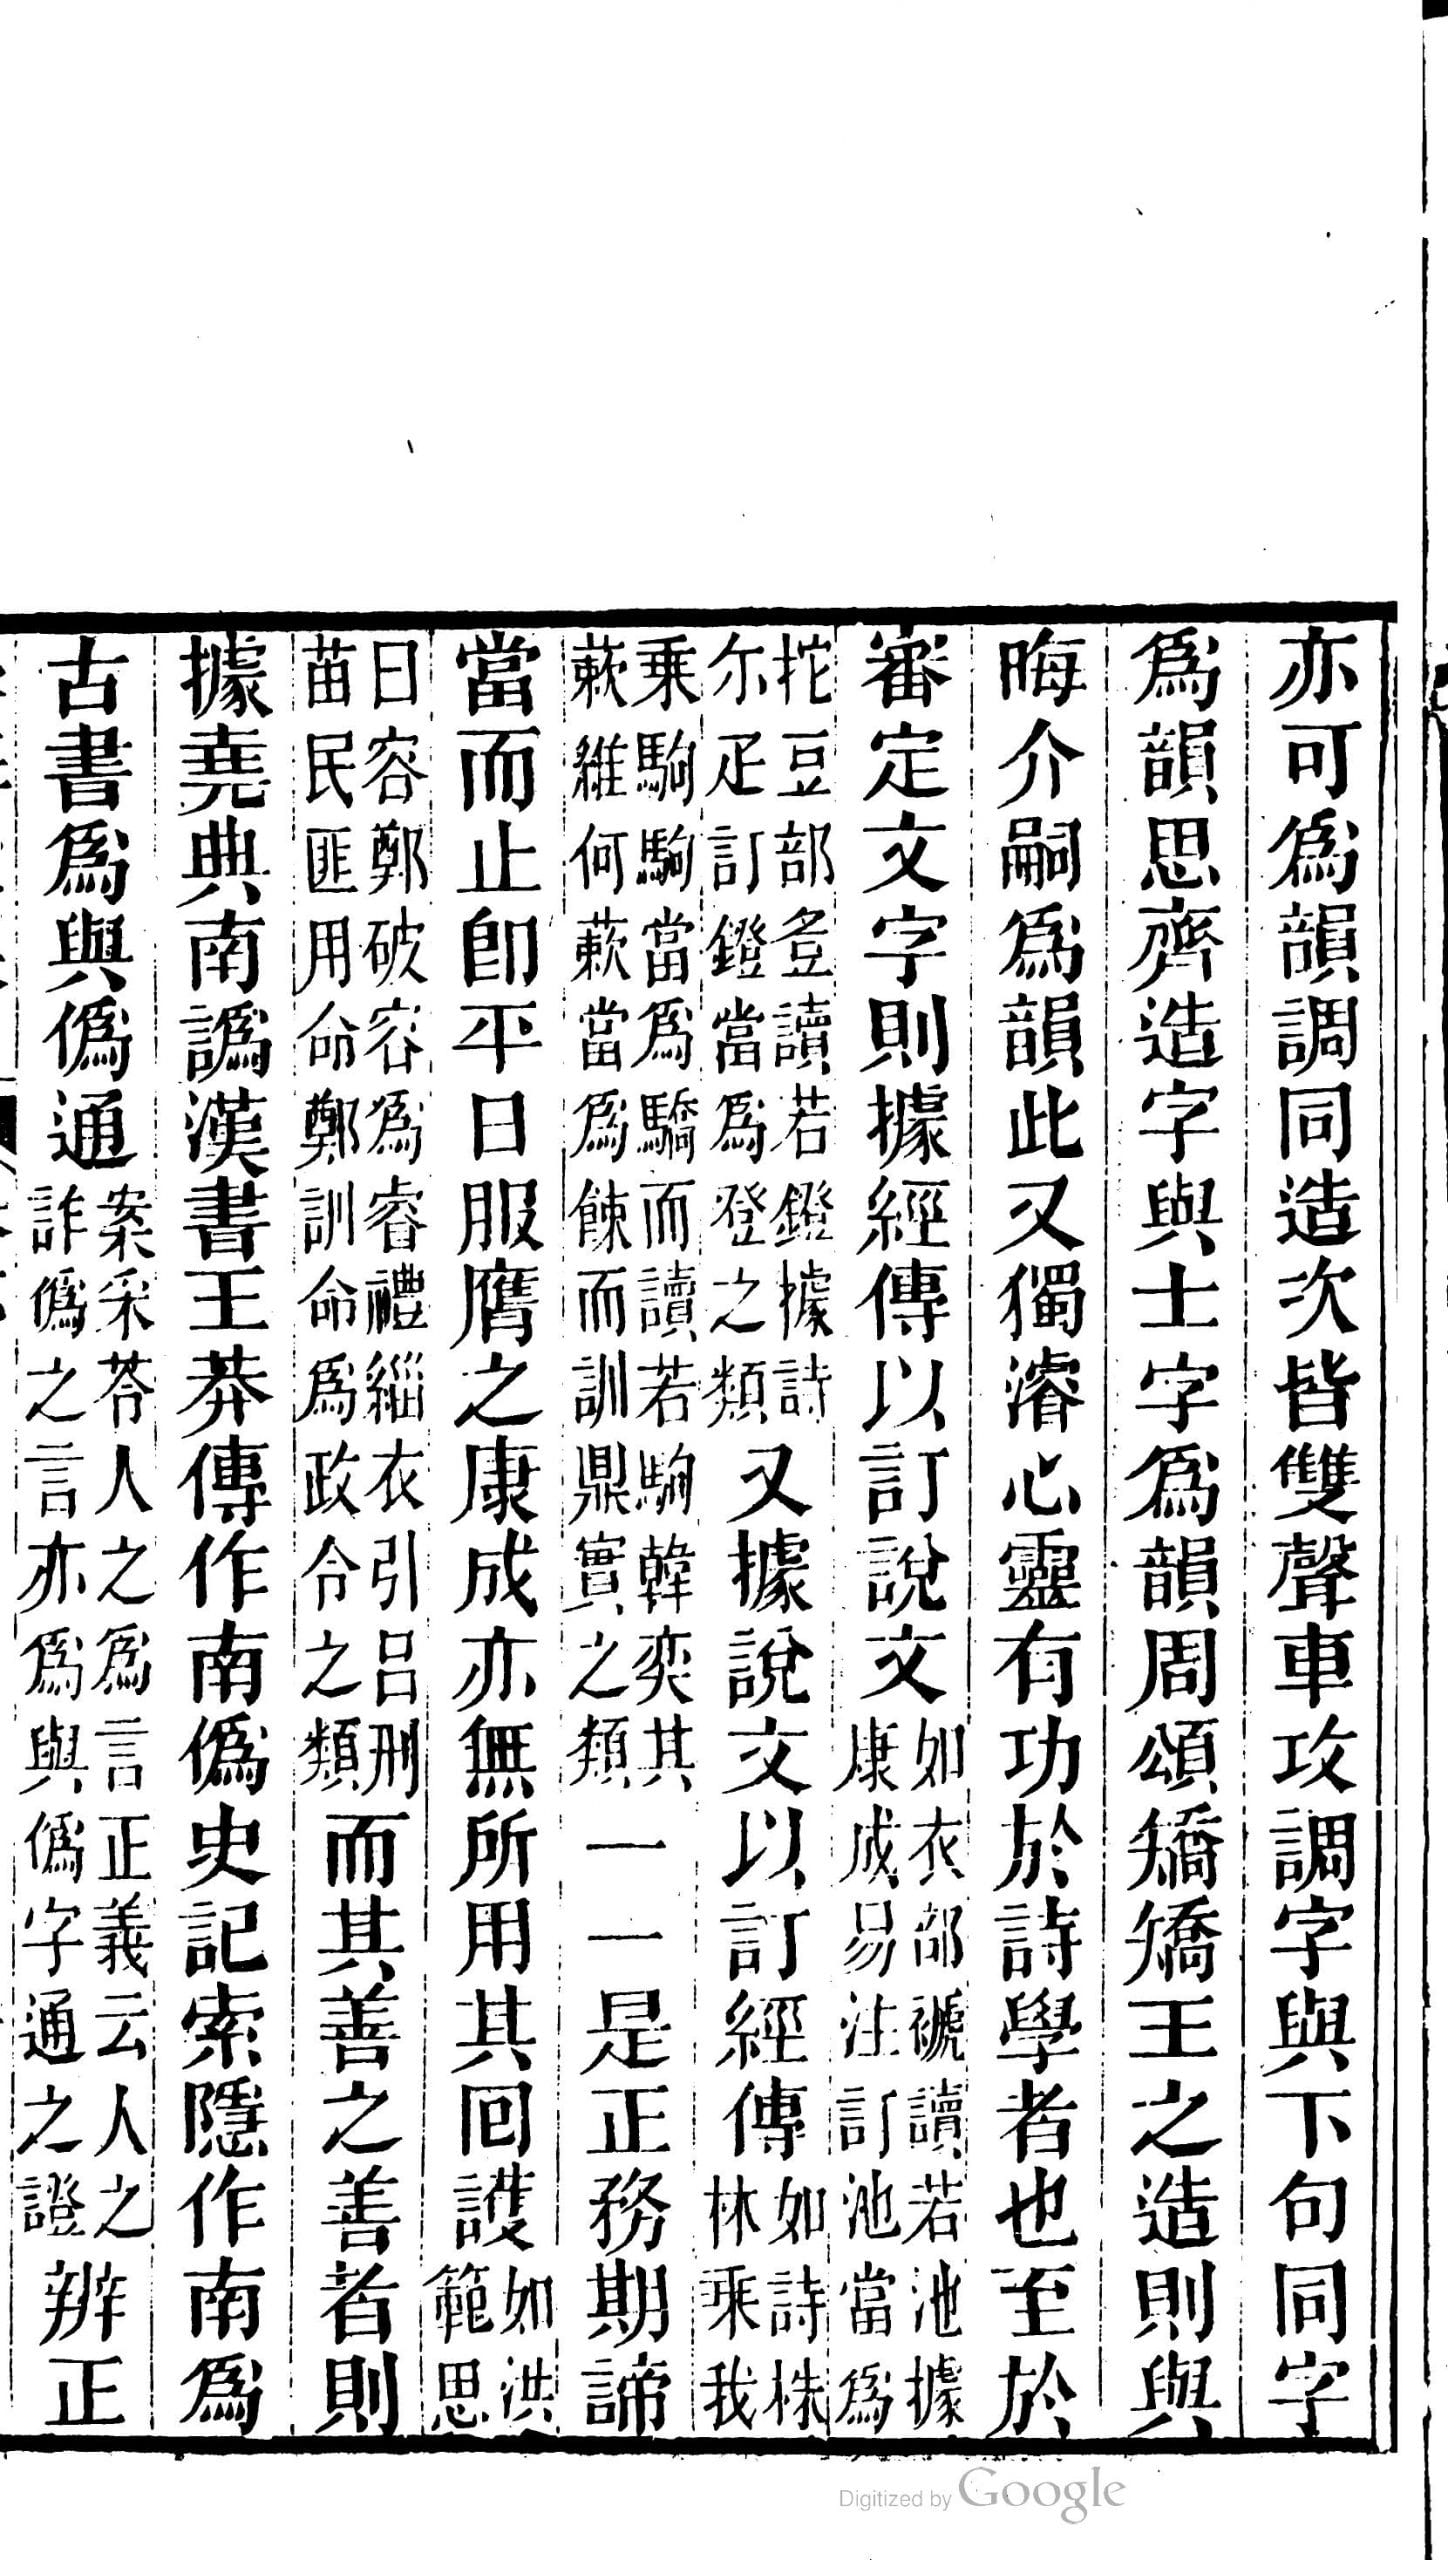 亦可爲韻調同造次皆雙聲車攻調字與下句同字
爲韻思齊造字與士字爲韻周頌矯矯王之造則與
晦介嗣爲韻此又獨濬心靈有功於詩學者也至於
審定文字則據經傳以訂說文如衣部褫讀若池據康成易注訂池當爲
拕豆部䇺讀若鐙據詩尒疋訂鐙當爲登之類又據說文以訂經傳如詩株林乘我
乘駒駒當爲驕而讀若駒韓奕其蔌維何蔌當爲餗而訓鼎實之類一一是正務期諦
當而止卽平日服膺之康成亦無所用其回護如洪範思
曰容鄭破容爲睿禮緇衣引呂刑苗民匪用命鄭訓命爲政令之類而其善之善者則
據堯典南譌漢書王莽傳作南僞史記索隱作南爲
古書爲與僞通案采苓人之爲言正義云人之詐僞之言亦爲與僞字通之證辨正
Digitized by Google